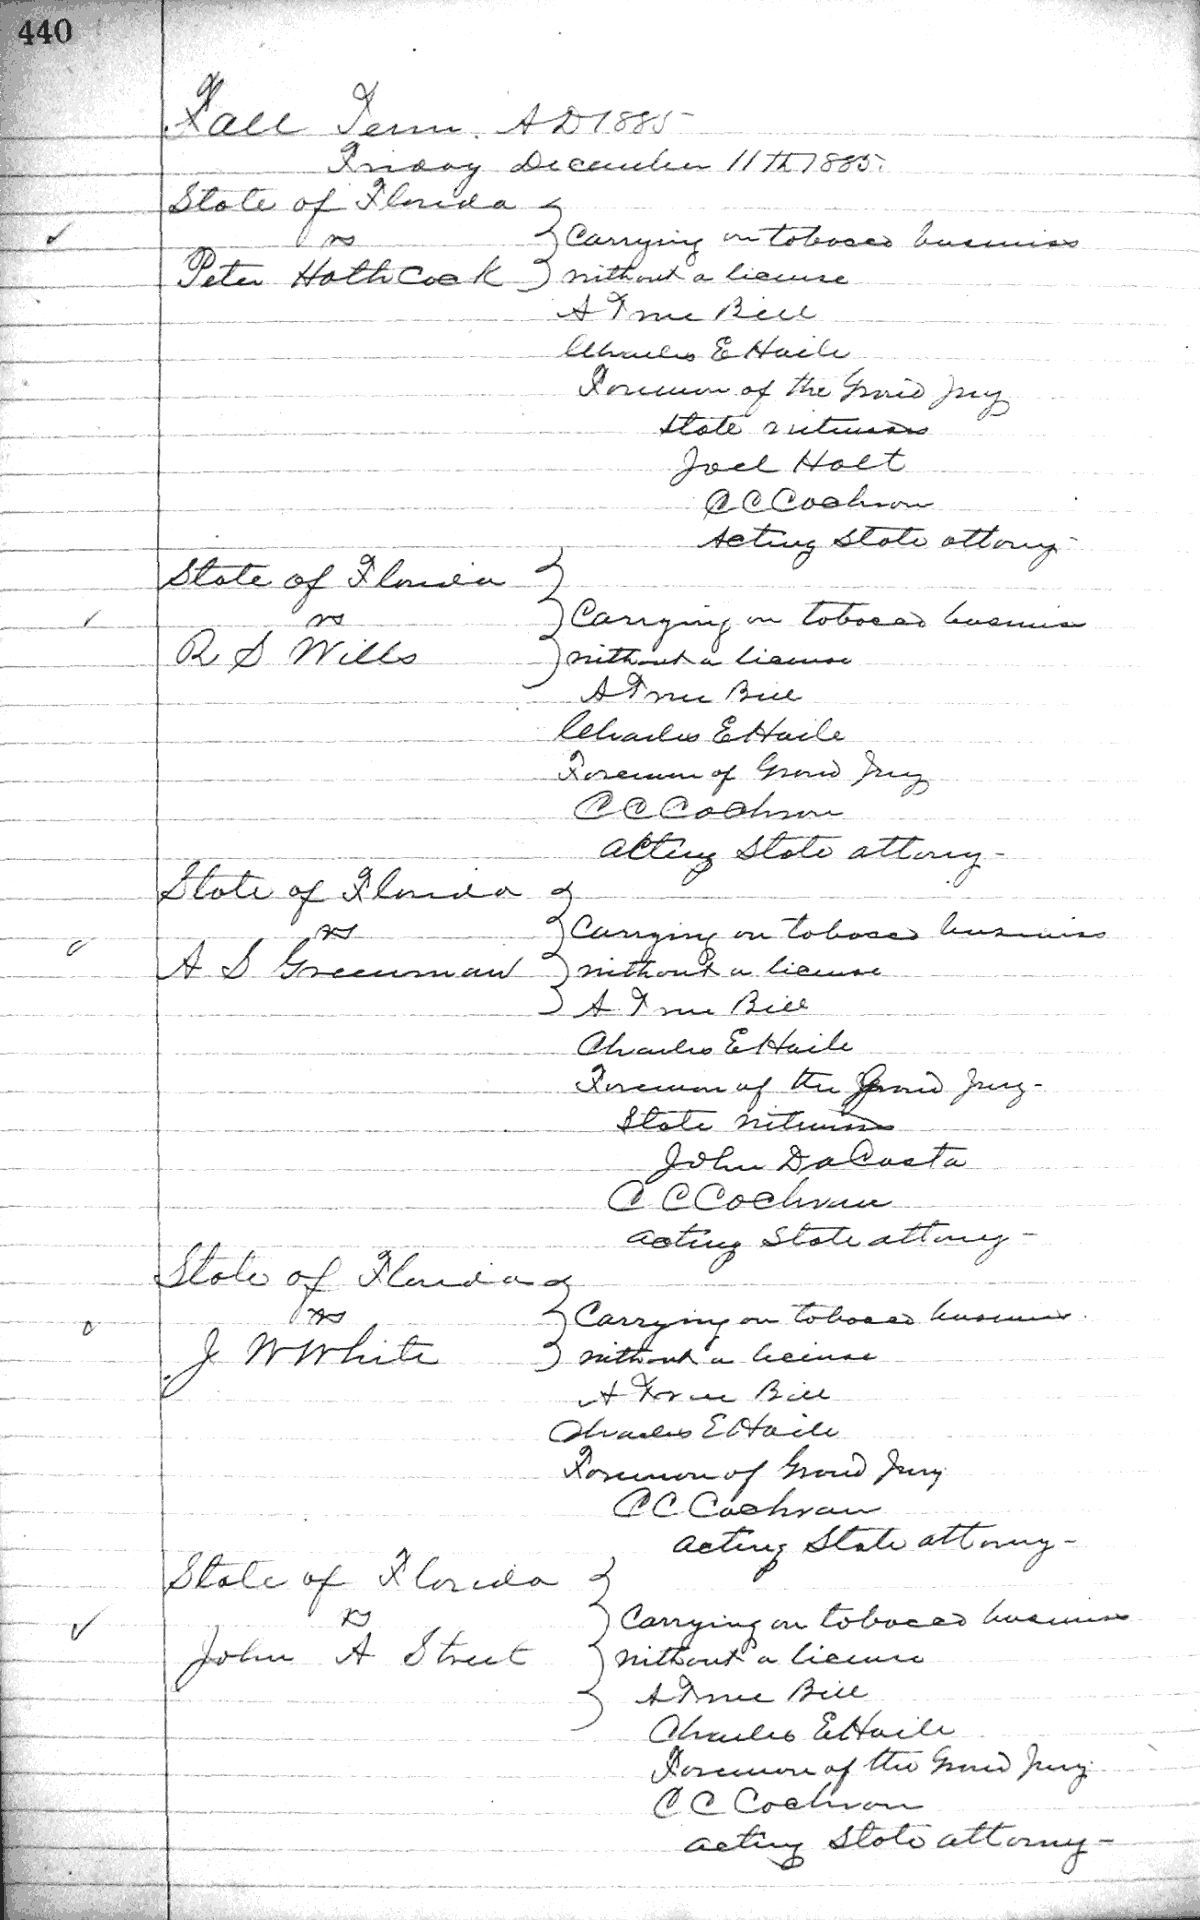 440
Fall Term. A D 1885
Friday December 11th 1885.
State of Florida
vs
Peter Hathcock
Carrying on tobacco business
without a license
A True Bill
Charles E Haile
Foreman of the Grand Jury
State witness
Joel Holt
C C Cochran
Acting State attorny
State of Florida
vs
R S Wills
Carrying on tobacco business
without a license
A True Bill
Charles E Haile
Foreman of Grand Jury
C C Cochran
acting State attorny-
State of Florida
vs
A S Greenman
Carrying on tobacco business
without a license
A True Bill
Charles E Haile
Foreman of the Grand Jury-
State witness
John DaCosta
C C Cochran
acting State attorny-
State of Florida
vs
J W White
Carrying on tobacco business
without a license
A True Bill
Charles E Haile
Foreman of Grand Jury
C C Cochran
acting State attorny-
State of Florida
vs
John A Street
Carrying on tobacco business
without a license
A True Bill
Charles E Haile
Foreman of the Grand Jury
C C Cochran
acting State attorny-